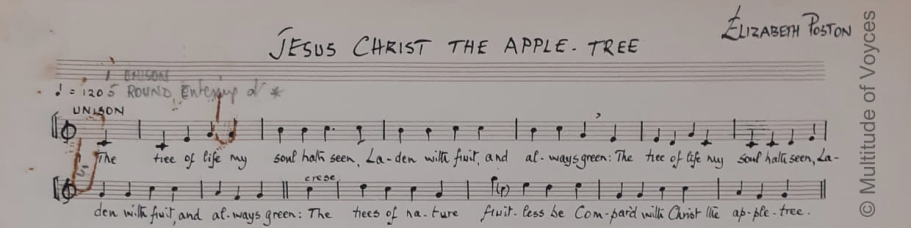 JESUS CHRIST THE APPLE-TREE
ELIZABETH POSTON
UNISON
♩ = 120 5 ROUND Entering *
UNISON
The tree of life my soul hath seen, La-den with fruit, and al-ways green: The tree of life my soul hath seen, La-
cresc
den with fruit, and al-ways green: The trees of na-ture fruit-less be Com-par'd with Christ the ap-ple-tree.
© Multitude of Voyces